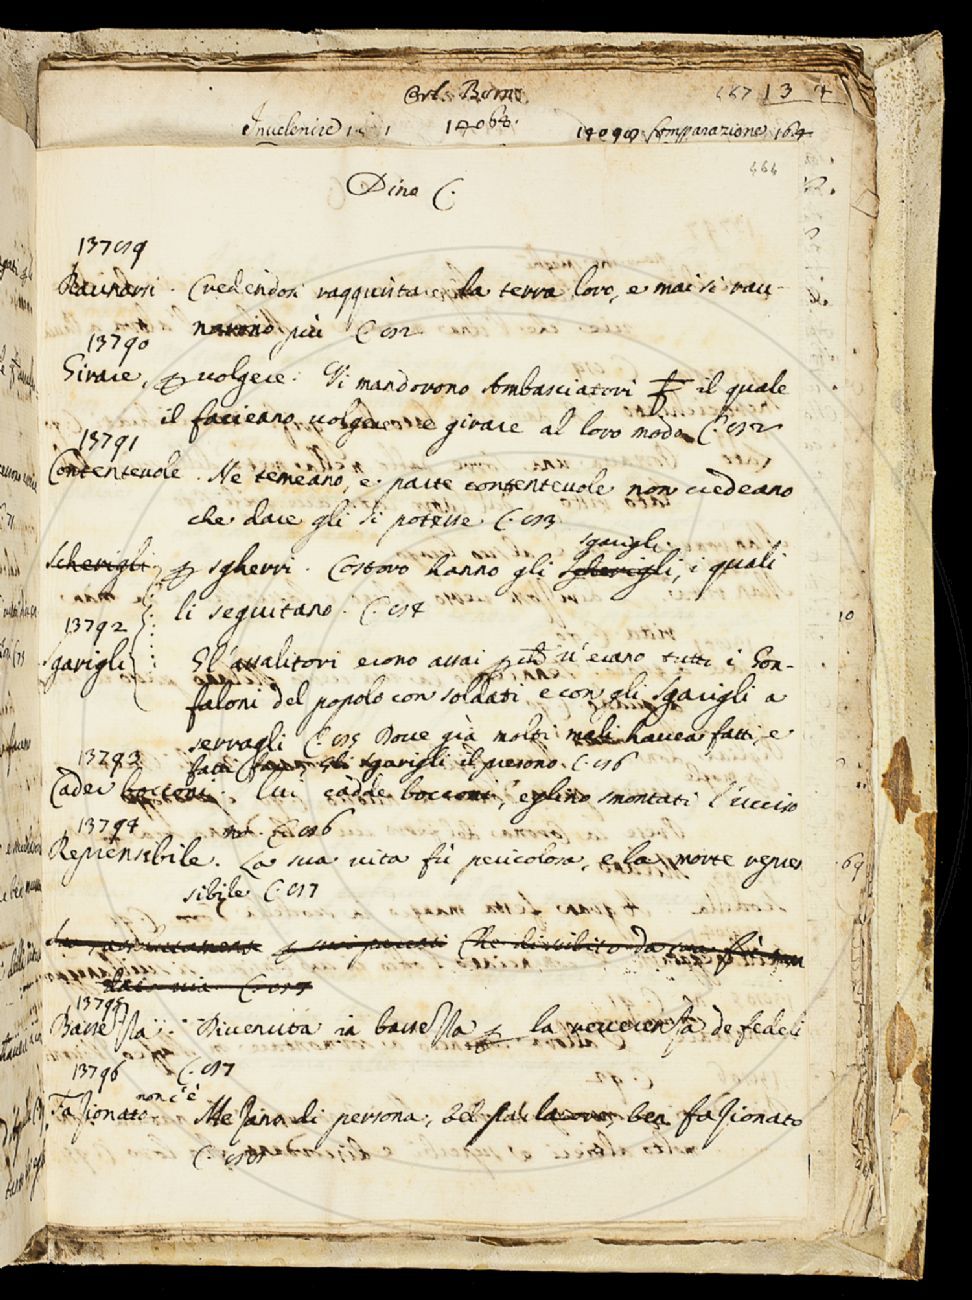 Invelenire 1 1 14064. 14098 Comparazione 164
Dino C.
13789
Raunarsi. Credendosi racquistare la terra loro, e mai si rau-
narono più C. 82
13790
Girare, p volgere. Vi mandorono Ambasciatori il quale
il facieano volgere e girare al loro modo C. 82
13791
Contentevole. Ne temeano, e parte contentevole non credeano
che dare gli si potesse C. 83
sgarigli
Scherigli p sgherri. Costoro hanno gli scherigli, i quali
li seguitano. C. 84
13792
Sgarigli Gl'assalitori erono assai v'erano tutti i Gon-
faloni del popolo con soldati e con gli Sgarigli a
serragli C. 85 Dove già molti mali havea fatti, e
fatti fare, gli sgarigli il presono. C. 86
13793
Cader bocconi. Lui cadde bocconi, eglino smontati l'ucciso
no. C. 86
13794
Reprensibile. La sua vita fù pericolosa, e la morte repren
sibile C. 87
13795
Bassezza. Divenuta in bassezza p la reverenza de fedeli
C. 87
13796
non c'è
Fazionato Mezano di persona, bel ben fazionato
69